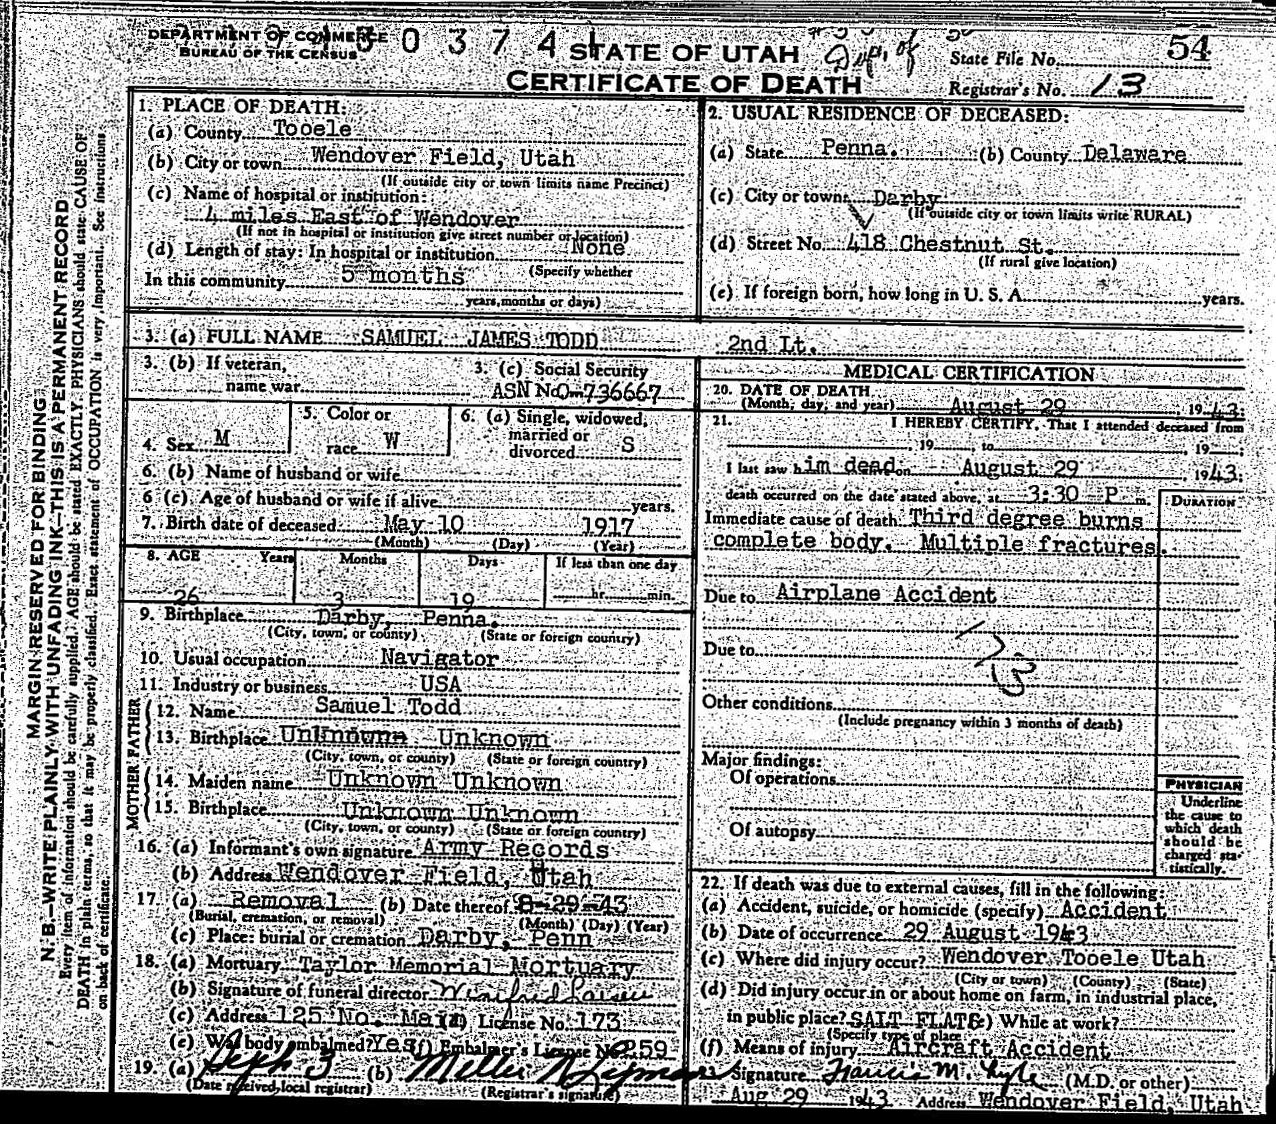 DEPARTMENT OF COMMERCE
BUREAU OF THE CENSUS
100374
STATE OF UTAH
CERTIFICATE OF DEATH
State File No. 54
Registrar's No. 13
MARGIN RESERVED FOR BINDING
N. B.—WRITE PLAINLY WITH UNFADING INK—THIS IS A PERMANENT RECORD
Every item of information should be carefully supplied. AGE should be stated EXACTLY. PHYSICIANS should state CAUSE OF
DEATH in plain terms, so that it may be properly classified. Exact statement of OCCUPATION is very important. See instructions
on back of certificate.
1. PLACE OF DEATH:
(a) County Tooele
(b) City or town Wendover Field, Utah
(If outside city or town limits name Precinct)
(c) Name of hospital or institution:
4 miles East of Wendover
(If not in hospital or institution give street number or location)
(d) Length of stay: In hospital or institution None
(Specify whether
In this community 5 months
years, months or days)
2. USUAL RESIDENCE OF DECEASED:
(a) State Penna. (b) County Delaware
(c) City or town Darby
(If outside city or town limits write RURAL)
(d) Street No. 418 Chestnut St.
(If rural give location)
(e) If foreign born, how long in U. S. A. years.
3. (a) FULL NAME SAMUEL JAMES TODD 2nd Lt.
3. (b) If veteran,
name war
3. (c) Social Security
ASN No. 736667
4. Sex M
5. Color or
race W
6. (a) Single, widowed,
married or
divorced S
6. (b) Name of husband or wife
6 (c) Age of husband or wife if alive years.
7. Birth date of deceased May 10 1917
(Month) (Day) (Year)
8. AGE Years Months Days If less than one day
26 3 19 hr. min.
9. Birthplace Darby, Penna.
(City, town, or county) (State or foreign country)
10. Usual occupation Navigator
11. Industry or business USA
FATHER
12. Name Samuel Todd
13. Birthplace Unknown Unknown
(City, town, or county) (State or foreign country)
MOTHER
14. Maiden name Unknown Unknown
15. Birthplace Unknown Unknown
(City, town, or county) (State or foreign country)
16. (a) Informant's own signature Army Records
(b) Address Wendover Field, Utah
17. (a) Removal (b) Date thereof 8-29-43
(Burial, cremation, or removal) (Month) (Day) (Year)
(c) Place: burial or cremation Darby, Penn
18. (a) Mortuary Taylor Memorial Mortuary
(b) Signature of funeral director Winifred Larsen
(c) Address 125 No. Main (d) License No. 173
(e) Was body embalmed? Yes (f) Embalmer's License No. 259
19. (a) Sept 3 (b)
(Date received local registrar) (Registrar's signature)
MEDICAL CERTIFICATION
20. DATE OF DEATH
(Month, day, and year) August 29, 1943.
21. I HEREBY CERTIFY, That I attended deceased from
, 19 to , 19 .
I last saw him dead on August 29 1943.
death occurred on the date stated above, at 3:30 P m.
DURATION
Immediate cause of death Third degree burns
complete body. Multiple fractures.
Due to Airplane Accident
Due to
173
Other conditions
(Include pregnancy within 3 months of death)
Major findings:
Of operations
Of autopsy
PHYSICIAN
Underline
the cause to
which death
should be
charged sta-
tistically.
22. If death was due to external causes, fill in the following:
(a) Accident, suicide, or homicide (specify) Accident
(b) Date of occurrence 29 August 1943
(c) Where did injury occur? Wendover Tooele Utah
(City or town) (County) (State)
(d) Did injury occur in or about home on farm, in industrial place,
in public place? SALT FLATS (e) While at work?
(Specify type of place
(f) Means of injury Aircraft Accident
23. Signature Francis M. (M.D. or other)
Aug 29 1943 Address Wendover Field, Utah